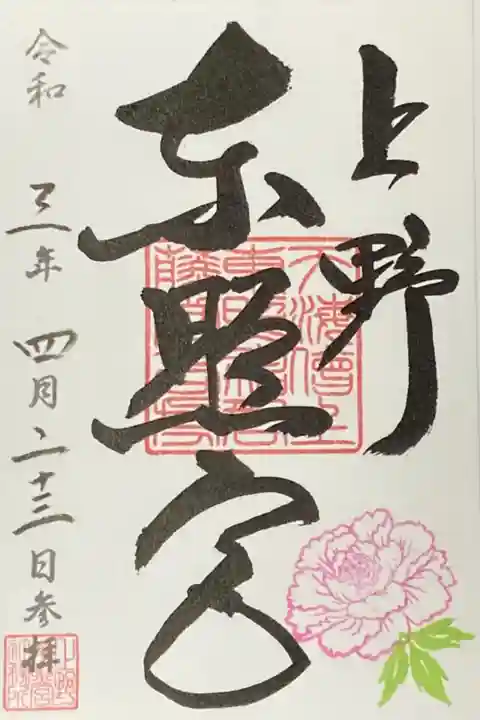 上野
東照宮
令和 三年 四月二十三日参拝